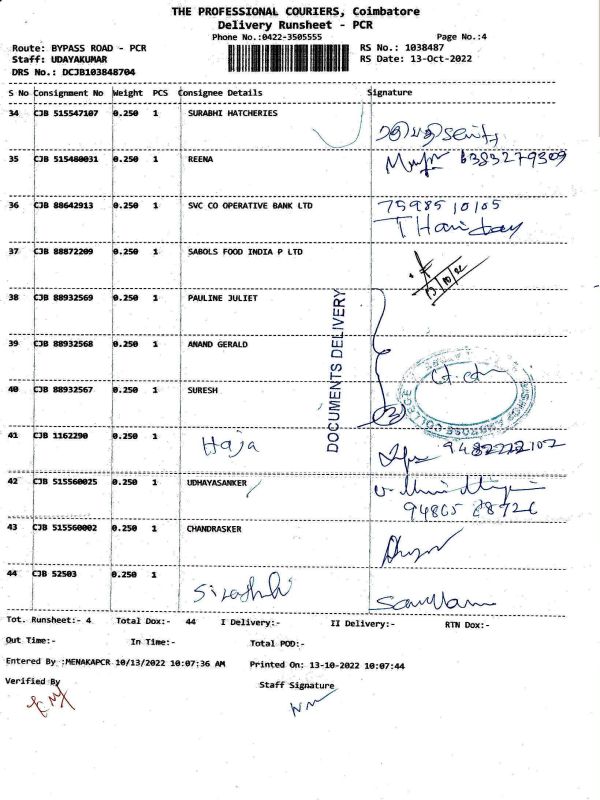 THE PROFESSIONAL COURIERS, Coimbatore
Delivery Runsheet - PCR
Phone No.:0422-3505555 Page No.:4
Route: BYPASS ROAD - PCR RS No.: 1038487
Staff: UDAYAKUMAR RS Date: 13-Oct-2022
DRS No.: DCJB103848704
S No Consignment No Weight PCS Consignee Details Signature
34 CJB 515547107 0.250 1 SURABHI HATCHERIES
35 CJB 515480031 0.250 1 REENA 6383279309
36 CJB 88642913 0.250 1 SVC CO OPERATIVE BANK LTD 7598510105
37 CJB 88872209 0.250 1 SABOLS FOOD INDIA P LTD
13/10/22
38 CJB 88932569 0.250 1 PAULINE JULIET
DOCUMENTS DELIVERY
39 CJB 88932568 0.250 1 ANAND GERALD
40 CJB 88932567 0.250 1 SURESH
3
41 CJB 1162290 0.250 1 Haja
42 CJB 515560025 0.250 1 UDHAYASANKER
43 CJB 515560002 0.250 1 CHANDRASKER
44 CJB 52503 0.250 1
Tot. Runsheet:- 4 Total Dox:- 44 I Delivery:- II Delivery:- RTN Dox:-
Out Time:- In Time:- Total POD:-
Entered By :MENAKAPCR 10/13/2022 10:07:36 AM Printed On: 13-10-2022 10:07:44
Verified By Staff Signature